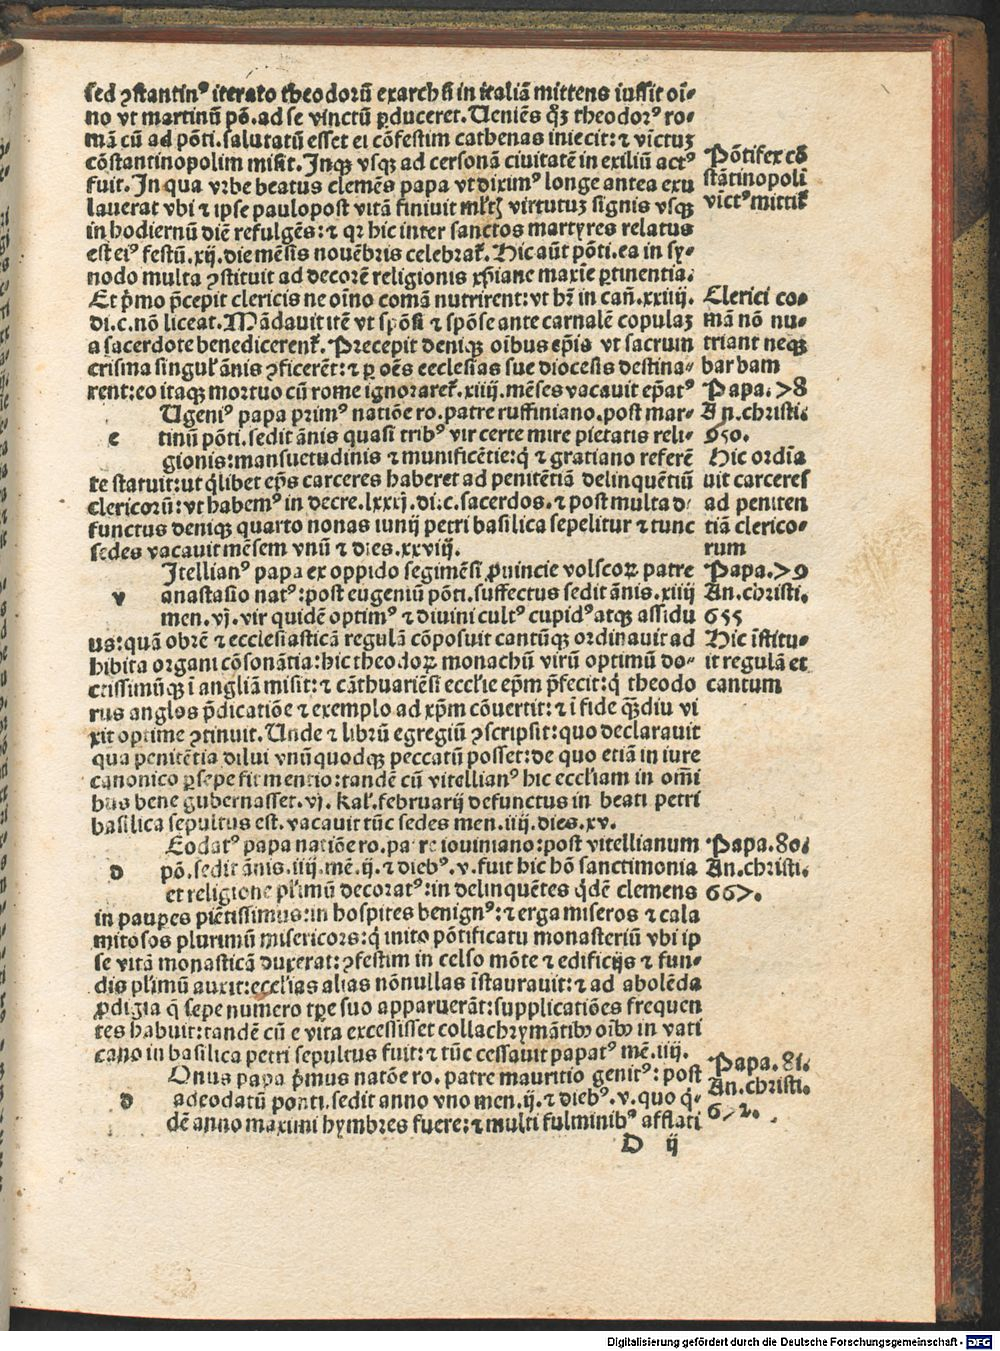 sed ꝯstantin⁹ iterato theodorū exarchū in italiā mittens iussit oī-
no vt martinū pō. ad se vinctū ꝑduceret. Ueniēs qꝫ theodor⁹ ro-
mā cū ad pōti. salutatū esset ei cōfestim cathenas iniecit: ⁊ vīctuꝫ
cōstantinopolim misit. Inqꝫ vsqꝫ ad cersonā ciuitatē in exiliū act⁹
fuit. In qua vrbe beatus clemēs papa vt dixim⁹ longe antea exu
lauerat vbi ⁊ ipse paulopost vitā finiuit ml'tꝫ virtutuꝫ signis vsqꝫ
in hodiernū diē refulgēs: ⁊ qꝛ hic inter sanctos martyres relatus
est ei⁹ festū. xij. die mēsis nouēbris celebrat̄. Hic aūt pōti. ea in sy-
nodo multa ꝯstituit ad decorē religionis xp̄iane maxie ꝑtinentia.
Et p̄mo p̄cepit clericis ne oīno comā nutrirent: vt hr̄ in cañ. xxiiij.
di. c. nō liceat. Mādauit itē vt spōsi ⁊ spōse ante carnalē copulaꝫ
a sacerdote benedicerent̄. Precepit deniqꝫ oibus ep̄is vt sacrum
crisma singul' ānis ꝯficerēt: ⁊ ꝑ oēs ecclesias sue diocesis destina-
rent: eo itaqꝫ mortuo cū rome ignoraret̄. xiiij. mēses vacauit ep̄at⁹
Ugeni⁹ papa prim⁹ natiōe ro. patre ruffiniano. post mar-
e tinū pōti. sedit ānis quasi trib⁹ vir certe mire pietatis reli-
gionis: mansuetudinis ⁊ munificētie: q̄ ⁊ gratiano referē
te statuit: ut q̄libet ep̄s carceres haberet ad penitētiā delinquētiū
clericorū: vt habem⁹ in decre. lxxxj. di. c. sacerdos. ⁊ post multa d
functus deniqꝫ quarto nonas iunij petri basilica sepelitur ⁊ tunc
sedes vacauit mēsem vnū ⁊ dies. xxviij.
Itellian⁹ papa ex oppido segimēsi ꝓuincie volscoꝝ patre
v anastasio nat⁹: post eugeniū pōti. suffectus sedit ānis. xiiij
men. vj. vir quidē optim⁹ ⁊ diuini cult⁹ cupid⁹ atqꝫ assidu
us: quā obrē ⁊ ecclesiasticā regulā cōposuit cantūqꝫ ordinauit ad
hibita organi cōsonātia: hic theodoꝝ monachū virū optimū do-
ctissimūqꝫ ī angliā misit: ⁊ cāthuariēsi eccl'ie ep̄m p̄fecit: q̄ theodo
rus anglos p̄dicatiōe ⁊ exemplo ad xp̄m cōuertit: ⁊ ī fide qꝫdiu vi
xit optime ꝯtinuit. Unde ⁊ librū egregiū ꝯscripsit: quo declarauit
qua penitētia dilui vnūquodqꝫ peccatū posset: de quo etiā in iure
canonico ꝑsepe fit mentio: tandē cū vitellian⁹ hic eccl'iam in om̄i
bus bene gubernasset. vj. kal'. februarij defunctus in beati petri
basilica sepultus est. vacauit tūc sedes men. iiij. dies. xv.
Eodat⁹ papa natiōe ro. patre iouiniano: post vitellianum
d pō. sedit ānis. iiij. mē. ij. ⁊ dieb⁹. v. fuit hic hō sanctimonia
et religione pl'imū decorat⁹: in delinquētes q̄dē clemens
in pauꝑes piētissimus: in hospites benign⁹: ⁊ erga miseros ⁊ cala
mitosos plurimū misericors: q̄ inito pōtificatu monasteriū vbi ip
se vitā monasticā duxerat: ꝯfestim in celso mōte ⁊ edificijs ⁊ fun-
dis pl'imū auxit: eccl'ias alias nōnullas īstaurauit: ⁊ ad abolēda
ꝓdigia q̄ sepe numero tꝑe suo apparuerāt: supplicatiōes frequen
tes habuit: tandē cū e vita excessisset collachrymātibꝫ oībꝫ in vati
cano in basilica petri sepultus fuit: ⁊ tūc cessauit papat⁹ mē. iiij.
Onus papa p̄mus natōe ro. patre mauritio genit⁹: post
d adeodatū ponti. sedit anno vno men. ij. ⁊ dieb⁹. v. quo q̄-
dē anno maximi hymbres fuere: ⁊ multi fulminib⁹ afflati
D ij
Pōtifex cō
stātinopoli
vīct⁹ mittit̄
Clerici co-
mā nō nu-
triant neqꝫ
barbam
Papa. 78
An. christi.
650.
Hic ordīa
uit carceres
ad peniten
tiā clerico-
rum
Papa. 79
An. christi.
655
Hic īstitu-
it regulā et
cantum
Papa. 80.
An. christi.
667.
Papa. 81.
An. christi.
672.
Digitalisierung gefördert durch die Deutsche Forschungsgemeinschaft - DFG